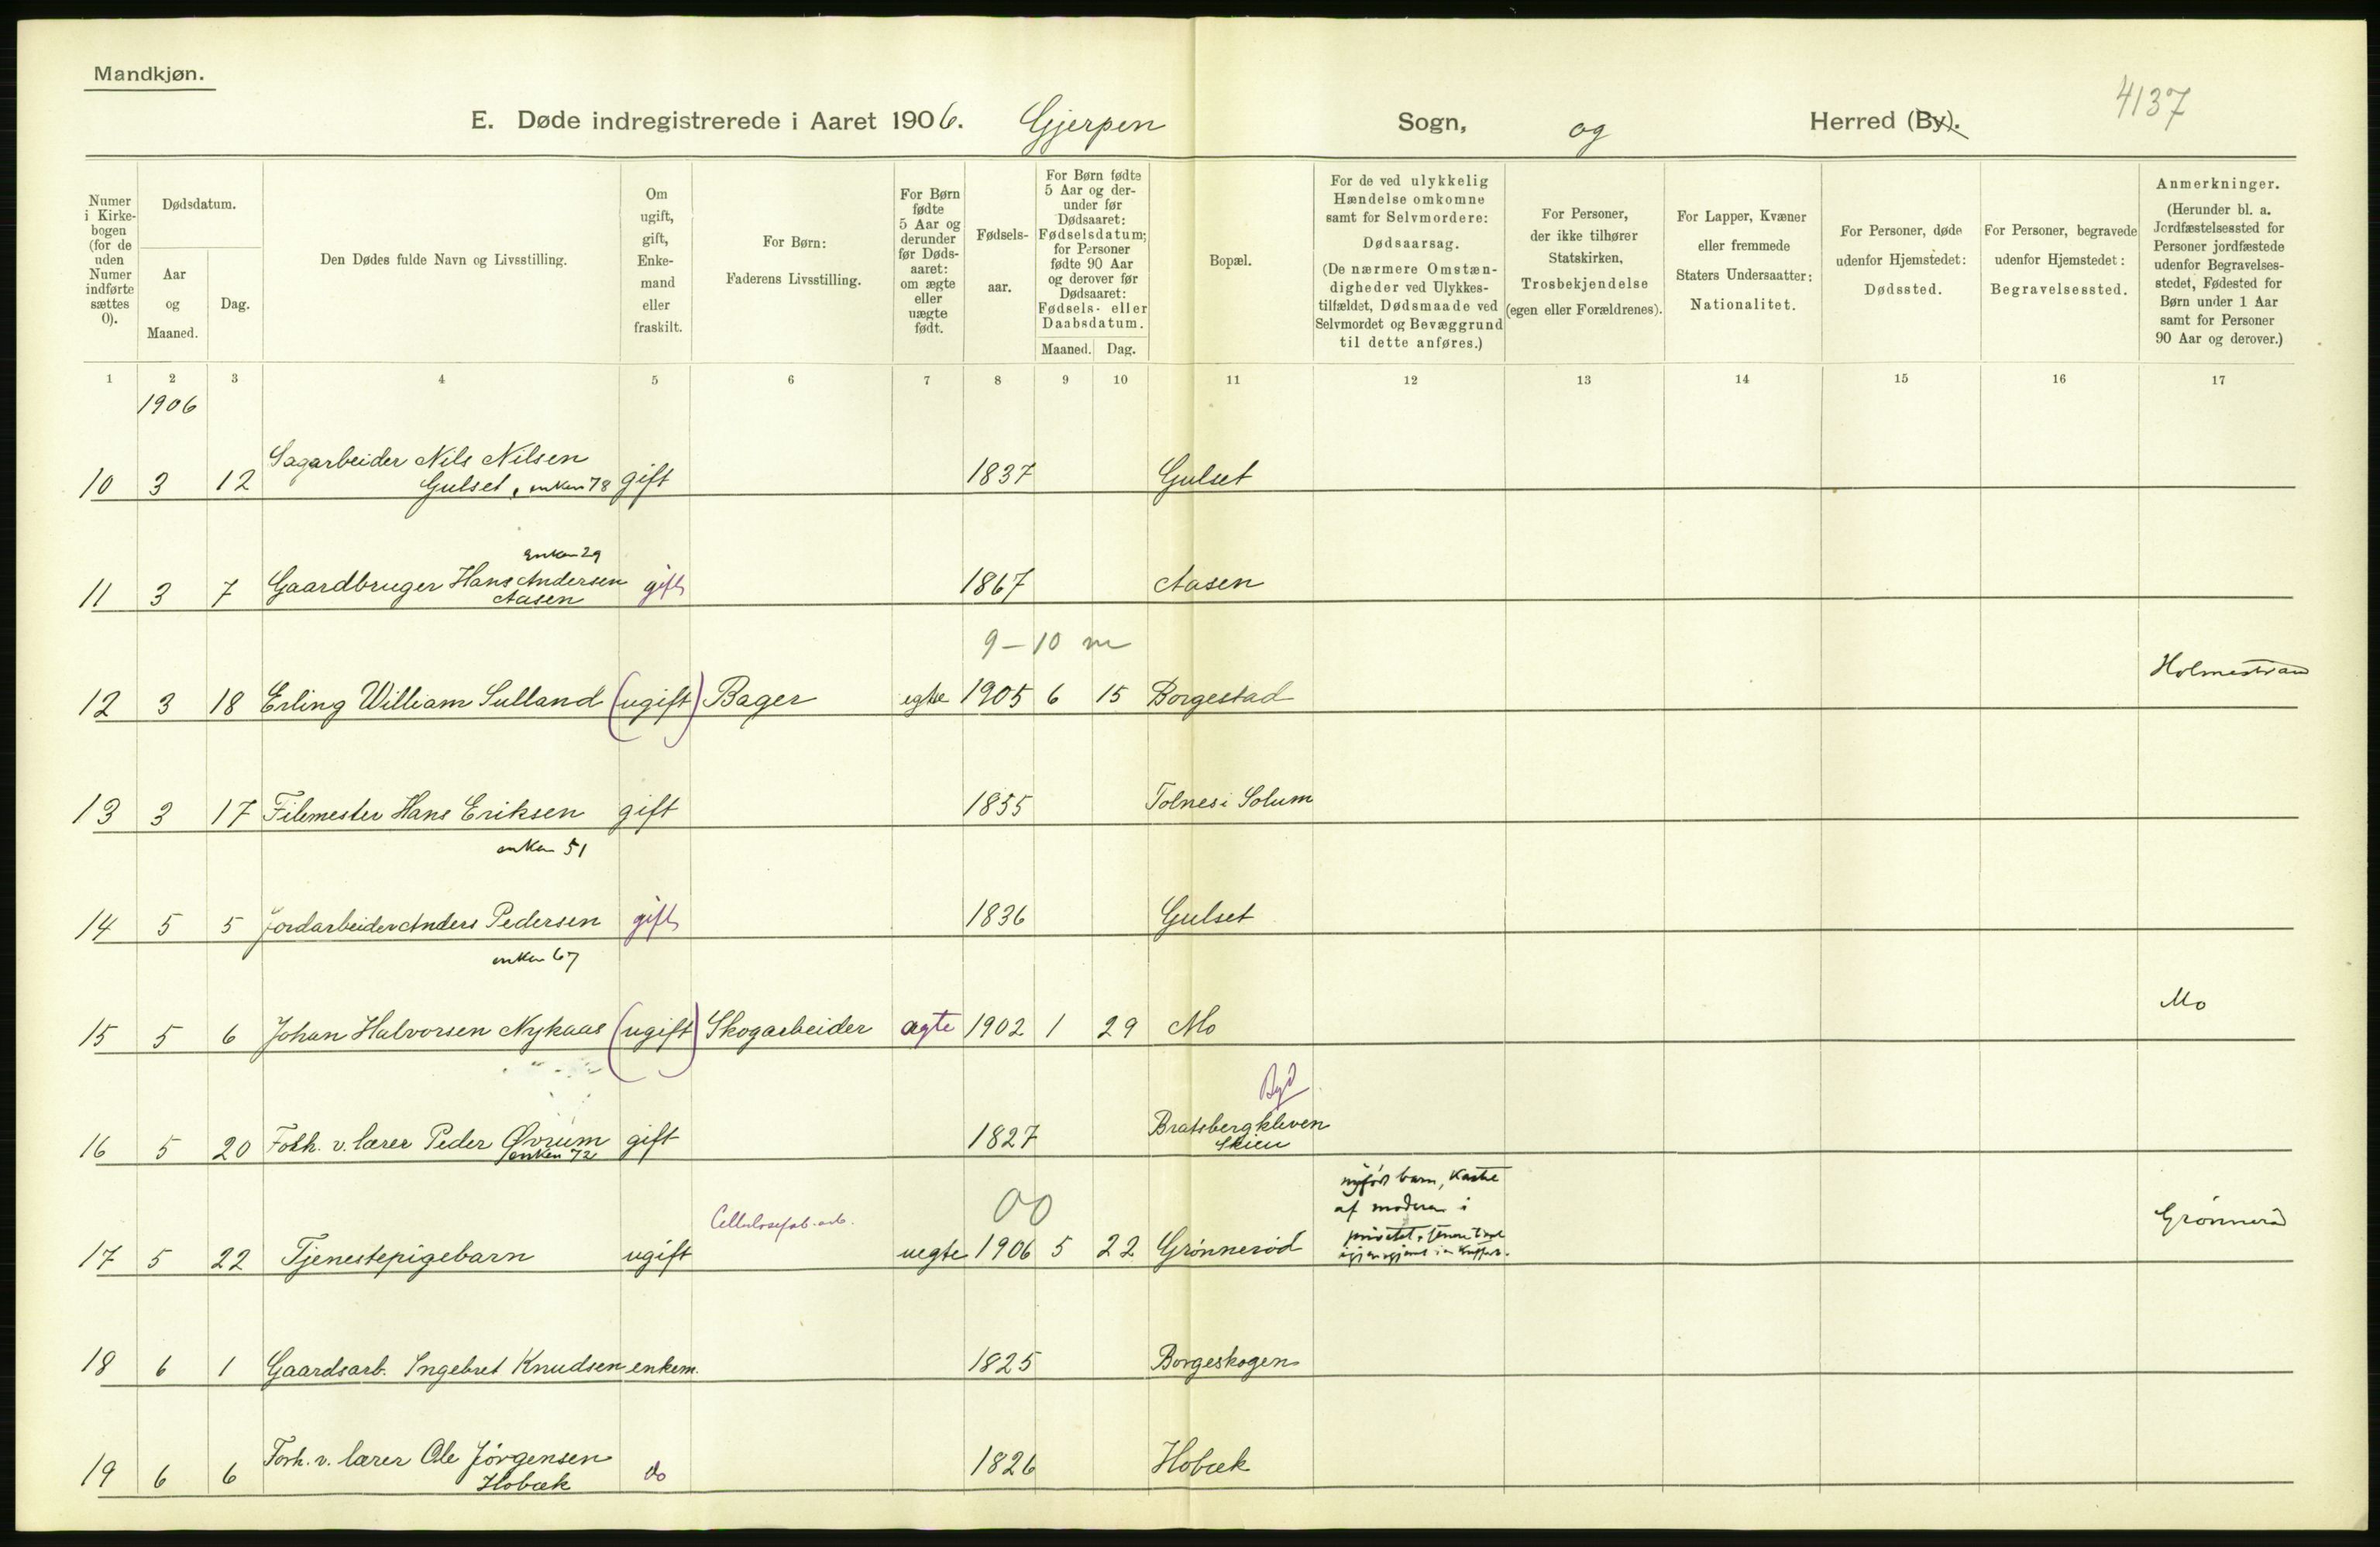 Mandkjøn.
4137
E. Døde indregistrerede i Aaret 1906. Gjerpen Sogn, og Herred (By).
Numer
i Kirke-
bogen
(for de
uden
Numer
indførte
sættes
0).
Dødsdatum.
Aar
og
Maaned.
Dag.
Den Dødes fulde Navn og Livsstilling.
Om
ugift,
gift,
Enke-
mand
eller
fraskilt.
For Børn:
Faderens Livsstilling.
For Børn
fødte
5 Aar og
derunder
før Døds-
aaret:
om ægte
eller
uægte
født.
Fødsels-
aar.
For Børn fødte
5 Aar og der-
under før
Dødsaaret:
Fødselsdatum;
for Personer
fødte 90 Aar
og derover før
Dødsaaret:
Fødsels- eller
Daabsdatum.
Maaned. Dag.
Bopæl.
For de ved ulykkelig
Hændelse omkomne
samt for Selvmordere:
Dødsaarsag.
(De nærmere Omstæn-
digheder ved Ulykkes-
tilfældet, Dødsmaade ved
Selvmordet og Bevæggrund
til dette anføres.)
For Personer,
der ikke tilhører
Statskirken,
Trosbekjendelse
(egen eller Forældrenes).
For Lapper, Kvæner
eller fremmede
Staters Undersaatter:
Nationalitet.
For Personer, døde
udenfor Hjemstedet:
Dødssted.
For Personer, begravede
udenfor Hjemstedet:
Begravelsessted.
Anmerkninger.
(Herunder bl. a.
Jordfæstelsessted for
Personer jordfæstede
udenfor Begravelses-
stedet, Fødested for
Børn under 1 Aar
samt for Personer
90 Aar og derover.)
1 2 3 4 5 6 7 8 9 10 11 12 13 14 15 16 17
1906
Sagarbeider Nils Nilsen
10 3 12 Gulset, enken 78 gift 1837 Gulset
enken 29
11 3 7 Gaardbruger Hans Andersen gift 1867 Aasen
Aasen
9-10 m
Holmestrand
12 3 18 Erling William Sulland (ugift) Bager egte 1905 6 15 Borgestad
13 3 17 Filemester Hans Eriksen gift 1855 Tolnes i Solum
enken 51
14 5 5 Jordarbeider Anders Pedersen gift 1836 Gulset
enken 67
Mo
15 5 6 Johan Halvorsen Nykaas (ugift) Skogarbeider ægte 1902 1 29 Mo
By?
16 5 20 Forh. v. lærer Peder Øvrum gift 1827 Bratsbergkleven
enken 72 Skien
nyfødt barn, kastet
af moderen i
Cellulosefab. arb. 00 Grønnerød
17 5 22 Tjenestepigebarn ugift uegte 1906 5 22 Grønnerød
18 6 1 Gaardsarb. Ingebret Knudsen enkem. 1825 Borgeskogen
Forh. v. lærer Ole Jørgensen
19 6 6 Hobæk do 1826 Hobæk